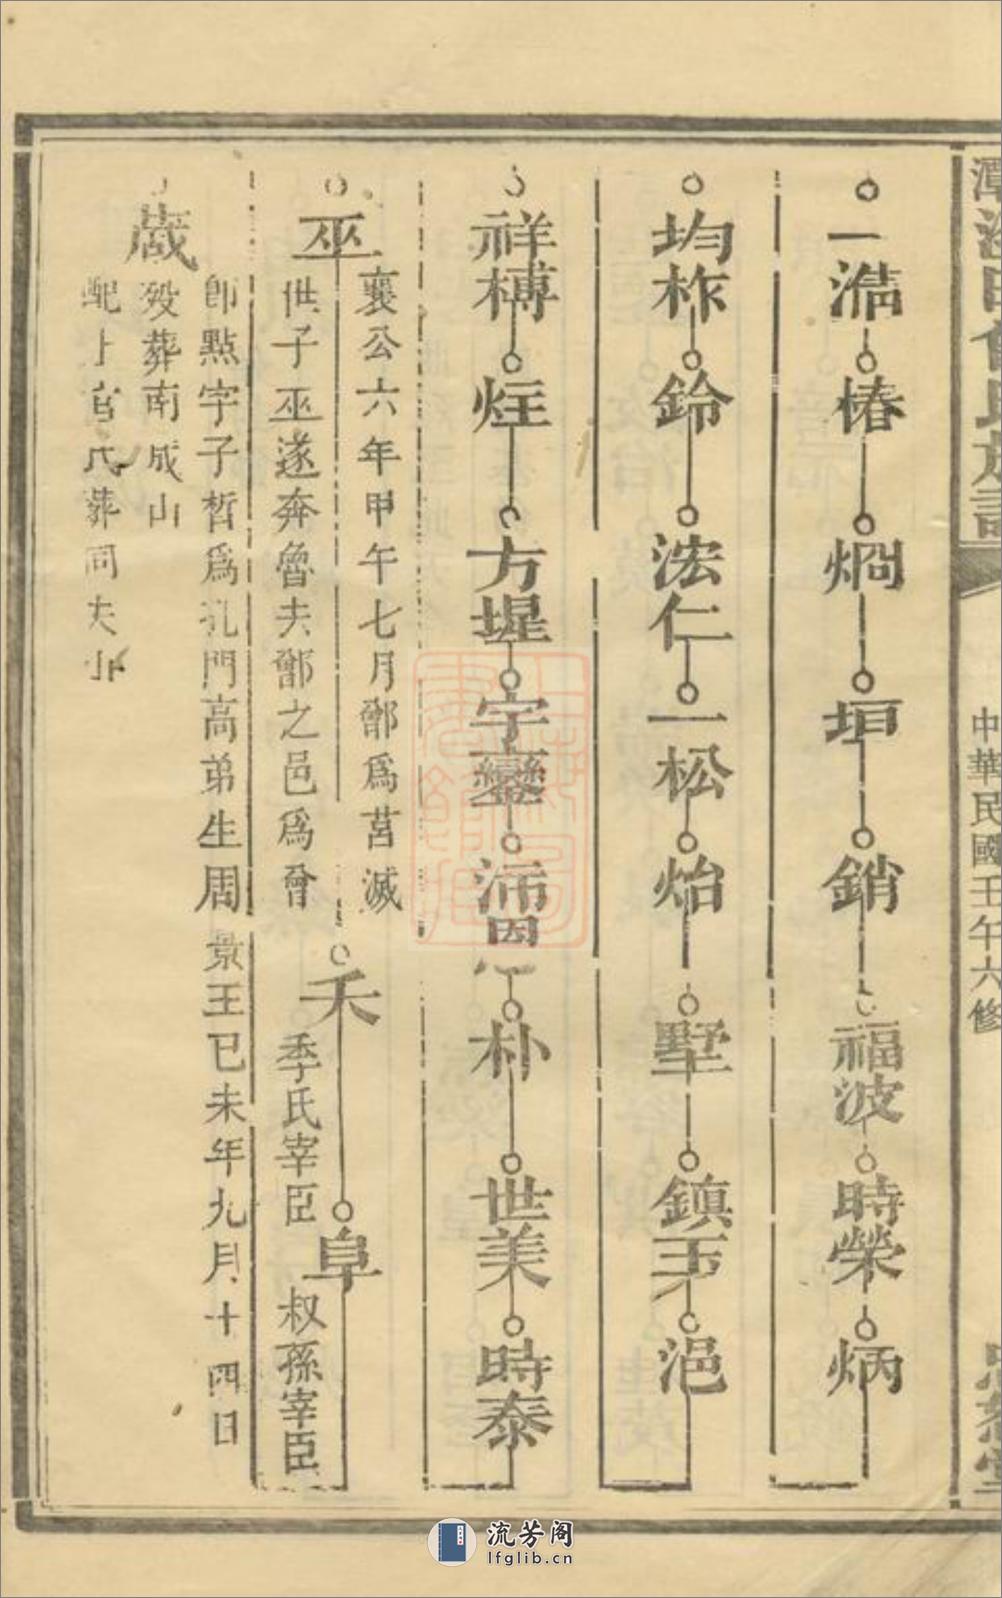 中華民國壬午六修
一澔 椿 烱 垣 銷 福波 時榮 炳
均柞 鈴 浤仁 一松 炲 墅 鎮玉 浥
祥榑 炷 方堤 宇 沛恩 朴 世美 時泰
巫 襄公六年甲午七月鄫爲莒滅
世子巫遂奔魯夫鄫之邑爲曾
夭 季氏宰臣
阜 叔孫宰臣
蒧 卽點字子晳爲孔門高弟生周景王己未年九月十四日
歿葬南成山
配上官氏葬同夫山
流芳阁
lfglib.cn